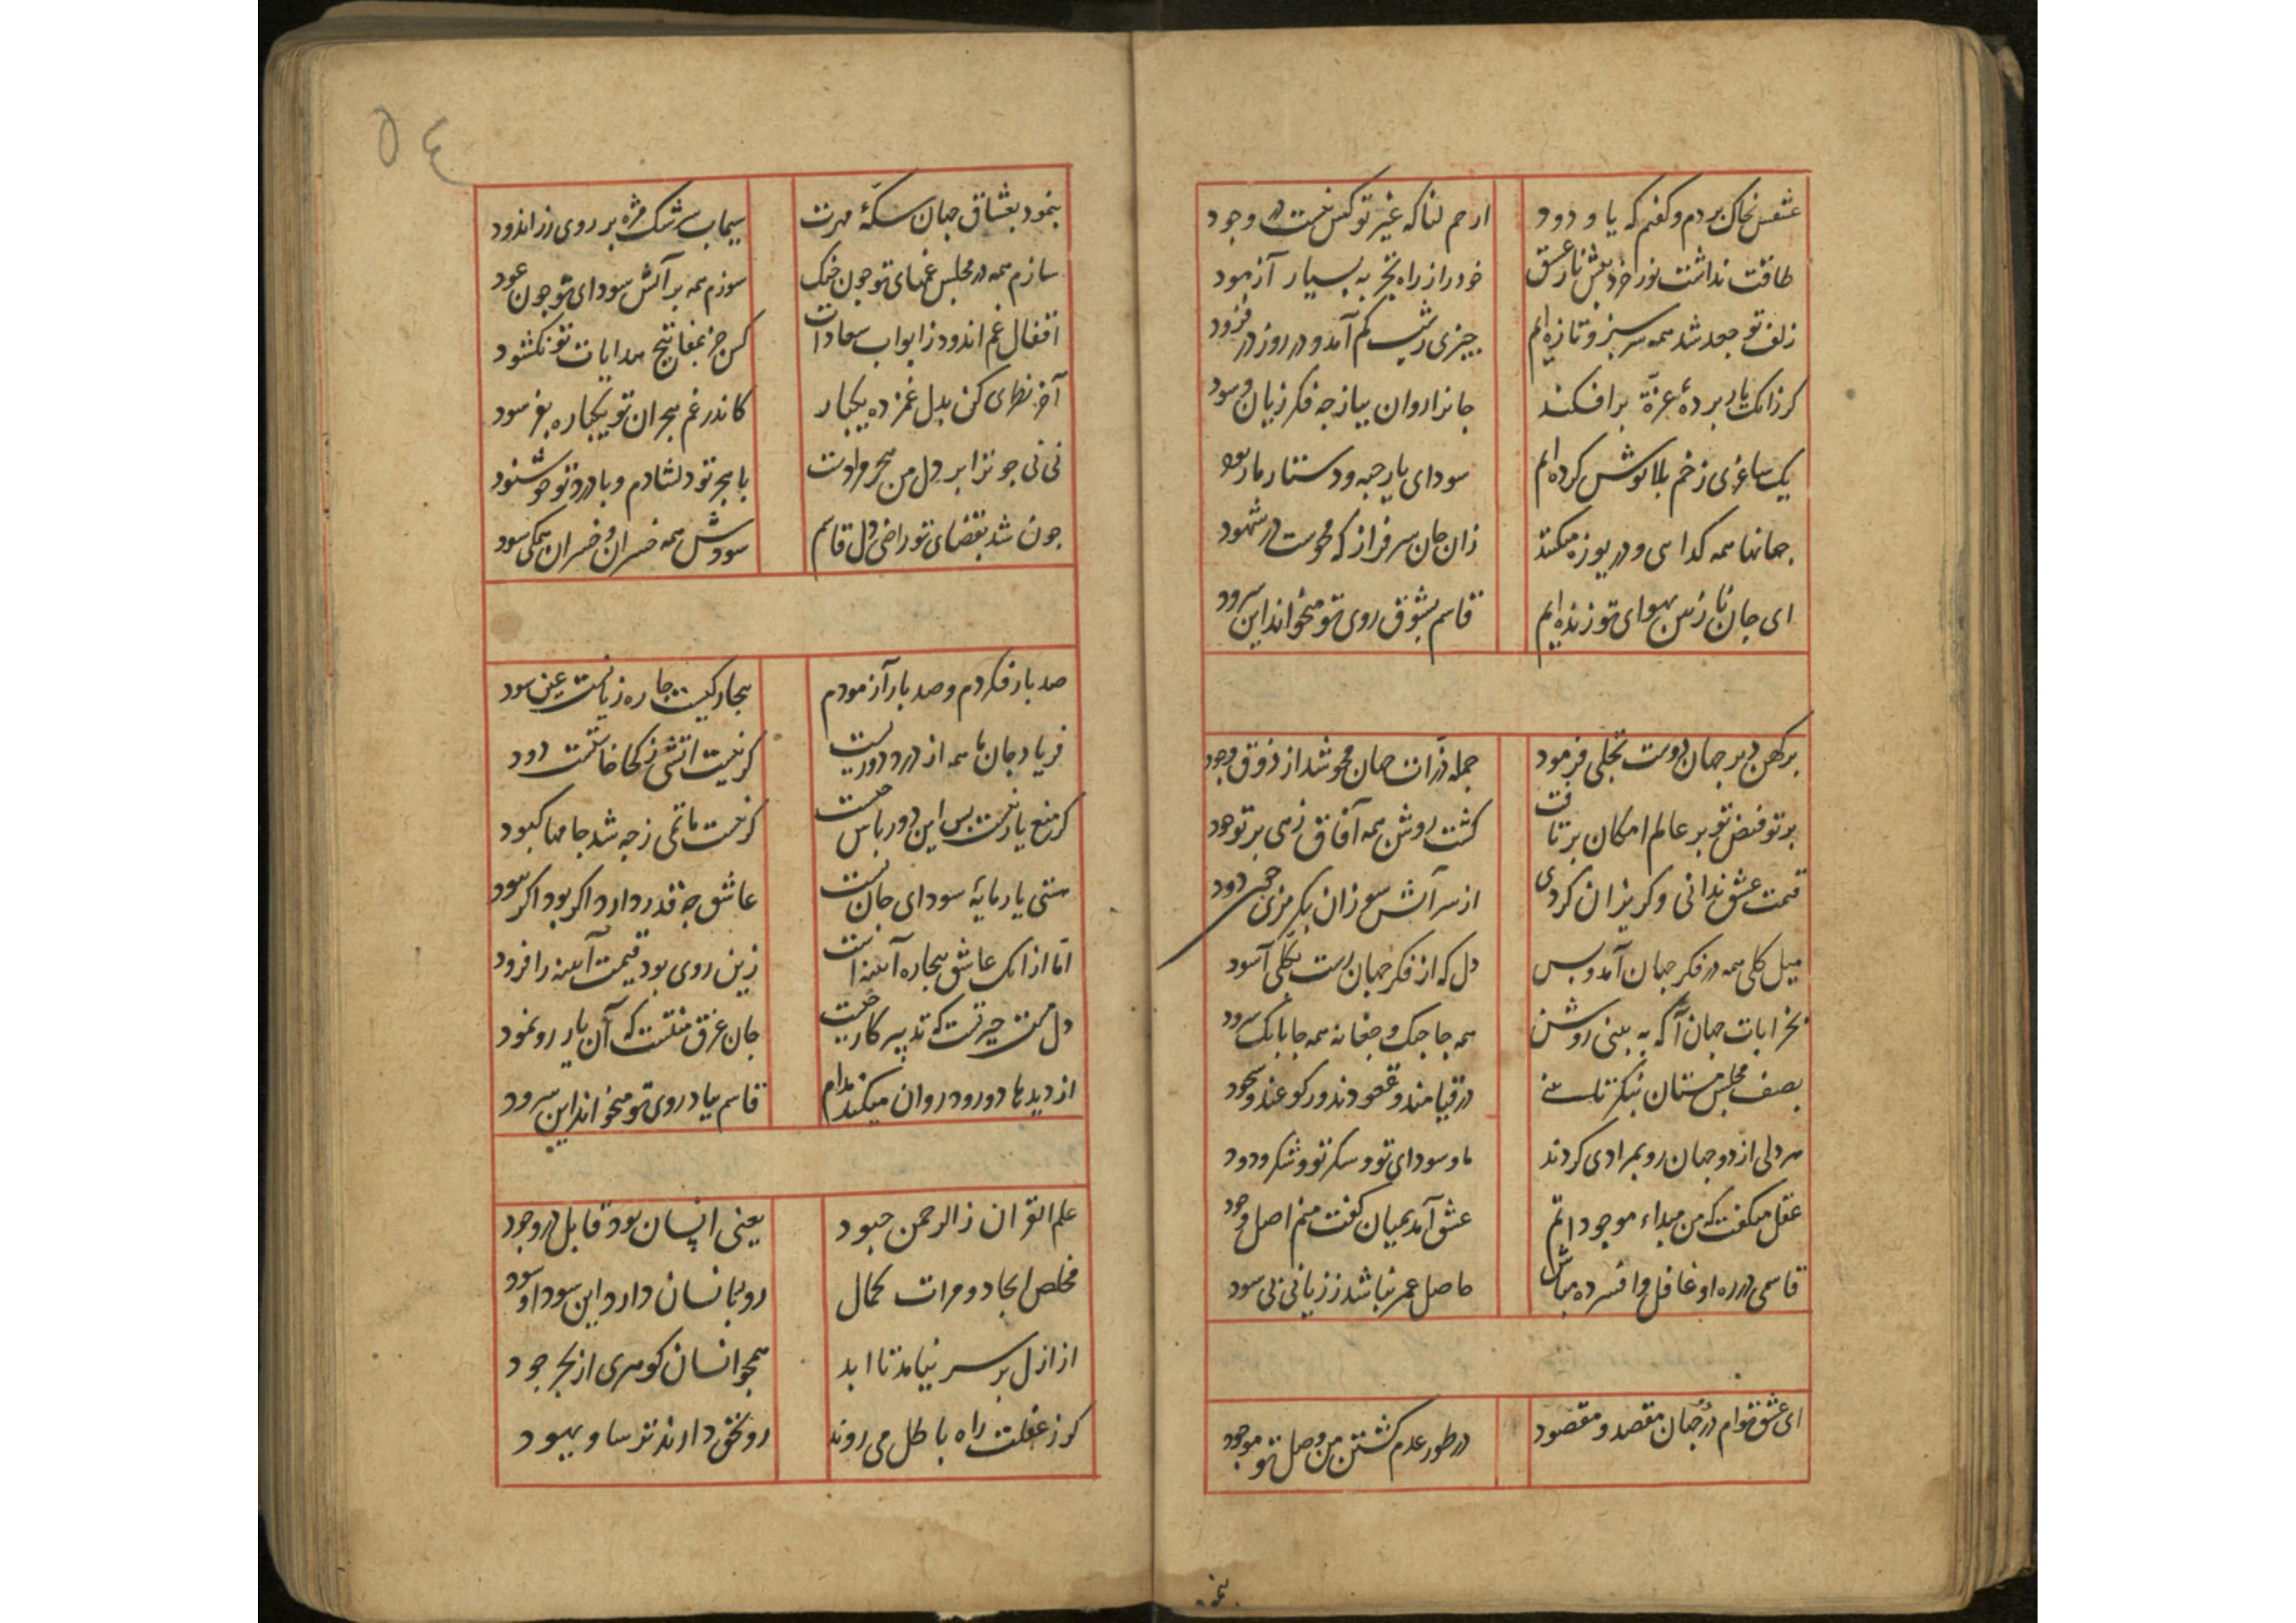 عشقس بخاک بردم و کفتم که یا ودود ارحم لنا که غیر تو کس نیست در وجود
طاقت نداشت نور خرد پیش نار عشق خود را ز راه تجربه بسیار آزمود
زلف تو جعد شد همه سرسبز و تازه‌ایم چیزی ز شب کم آمد و در روز در فزود
کر زانک یار پردهٔ عزة برافکند جانرا روان بباز چه فکر زیان و سود
یک ساغری ز خم بلا نوش کرده‌ایم سودای یار جبه و دستار ما ربود
جانها همه کدایی و دریوزه میکنند زان جان سرفراز که محوست در شهود
ای جان نازنین بهوای تو زنده‌ایم قاسم بشوق روی تو میخواند این سرود
بر کهن دیر جهان دوست تجلی فرمود جمله ذرات جهان محو شد از ذوق وجود
پرتو فیض تو بر عالم امکان برتافت کشت روشن همه آفاق زهی پرتو جود
قیمت عشق ندانی و کریزان کردی از سر آتش سوزان بکریزی چون دود
میل کلی همه در فکر جهان آمد و بس دل که از فکر جهان رست بکلی آسود
بخرابات جهان آ که ببینی روشن همه جا چنک و چغانه همه جا بانک سرود
بصف مجلس مستان بنکر تا بینی در قیامند و قعودند و رکوعند و سجود
هر دلی از دو جهان رو بمرادی کردند ما و سودای تو و سکر تو و شکر ودود
عقل میکفت که من مبداء موجوداتم عشق آمد بمیان کفت منم اصل وجود
قاسمی در ره او غافل و افسرده مباش حاصل عمر نباشد ز زیانی بی سود
ای عشق توام در دو جهان مقصد و مقصود در طور عدم کشتن من وصل تو موجود
بنمود
٥٤
بنمود بعشاق جهان سکهٔ مهرت سیماب سرشک مژه بر روی زراندود
سازم همه در مجلس غمهای تو چون چنک سوزم همه بر آتش سودای تو چون عود
اقفال غم اندود ز ابواب سعادات کس جز بمفاتیح هدایات تو نکشود
آخر نظری کن بدل غمزده یکبار کاندر غم هجران تو یکباره بفرسود
نی نی چو ترا بر دل من هجر مرادست با هجر تو دلشادم و با درد تو خوشنود
چون شد بقضای تو راضی دل قاسم سودش همه خسران و خسران همکی سود
صد بار فکر کردم و صد بار آزمودم بیچارکیست چاره زیانست عین سود
فریاد جان ما همه از درد دوریست کر نیست آتشی ز کجا خاستست دود
کر منع یار نیست بس این دور باش چیست کر نیست ماتمی ز چه شد جامها کبود
هستی یار مایهٔ سودای جان ماست عاشق چه قدر دارد اکر بود اکر نبود
اما از آنک عاشق بیچاره آینه است زین روی بود قیمت آیینه را فزود
دل مست حیرتست که تدبیر کار چیست جان غرق منتست که آن یار رو نمود
از دیدها دو رود روان میکند مدام قاسم بیاد روی تو میخواند این سرود
علم القران ز الرحمن چبود یعنی انسان بود قابل در وجود
مخلص ایجاد و مرات کمال رو بانسان دارد این سودا و سود
از ازل بر سر نیامد تا ابد همچو انسان کوهری از بحر جود
کر ز غفلت راه باطل می روند رو بحق دارند ترسا و یهود